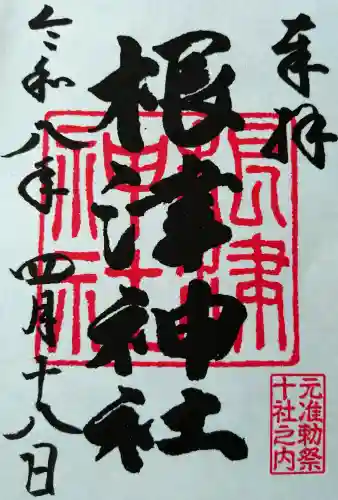 奉拝
根津神社
根津神社
令和八年四月十八日
元准勅祭
十社之内